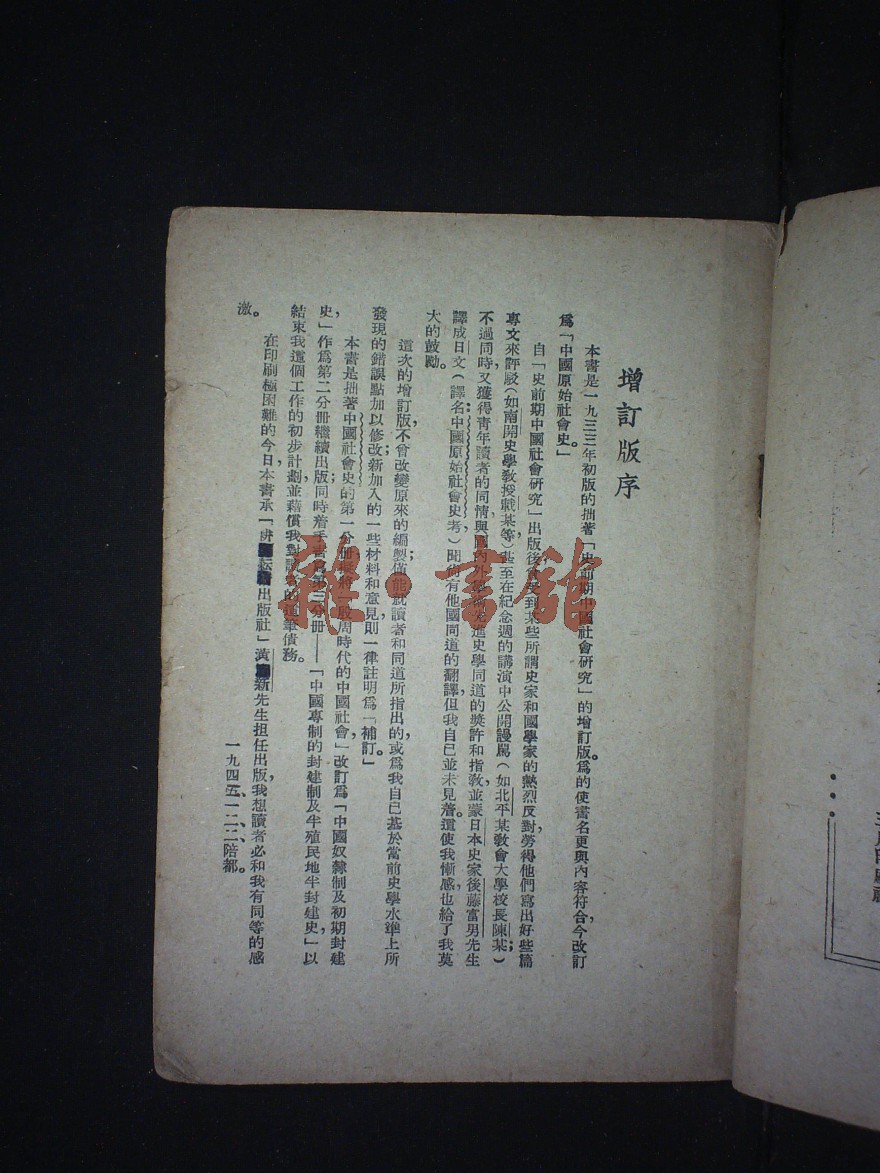 增訂版序
本書是一九三三年初版的拙著「史前期中國社會研究」的增訂版。爲的使書名更與內容符合，今改訂
爲「中國原始社會史。」
自「史前期中國社會研究」出版後，會受到某些所謂史家和國學家的熱烈反對，勞得他們寫出好些篇
專文來評駁（如南開史學教授戴某等）甚至在紀念週的講演中公開謾罵（如北平某教會大學校長陳某）；
不過同時，又獲得青年讀者的同情與國內外學術先進史學同道的獎許和指教，並蒙日本史家後藤富男先生
譯成日文（譯名中國原始社會史考）聞尚有他國同道的翻譯，但我自己並未見着。這使我慚感，也給了我莫
大的鼓勵。
這次的增訂版，不曾改變原來的編製，僅能就讀者和同道所指出的，或爲我自己基於當前史學水準上所
發現的錯誤點加以修改；新加入的一些材料和意見，則一律註明爲「補訂。」
本書是拙著中國社會史的第一分冊，擬將「殷周時代的中國社會」改訂爲「中國奴隸制及初期封建
史，」作爲第二分冊繼續出版；同時着手第三分冊——「中國專制的封建制及半殖民地半封建史」以
結束我這個工作的初步計劃，並藉償我對讀者的這筆債務。
在印刷極困難的今日，本書承「耕出版社」黃新先生担任出版，我想讀者必和我有同等的感
激。
一九四五、一二、二、陪都。
雜·書館